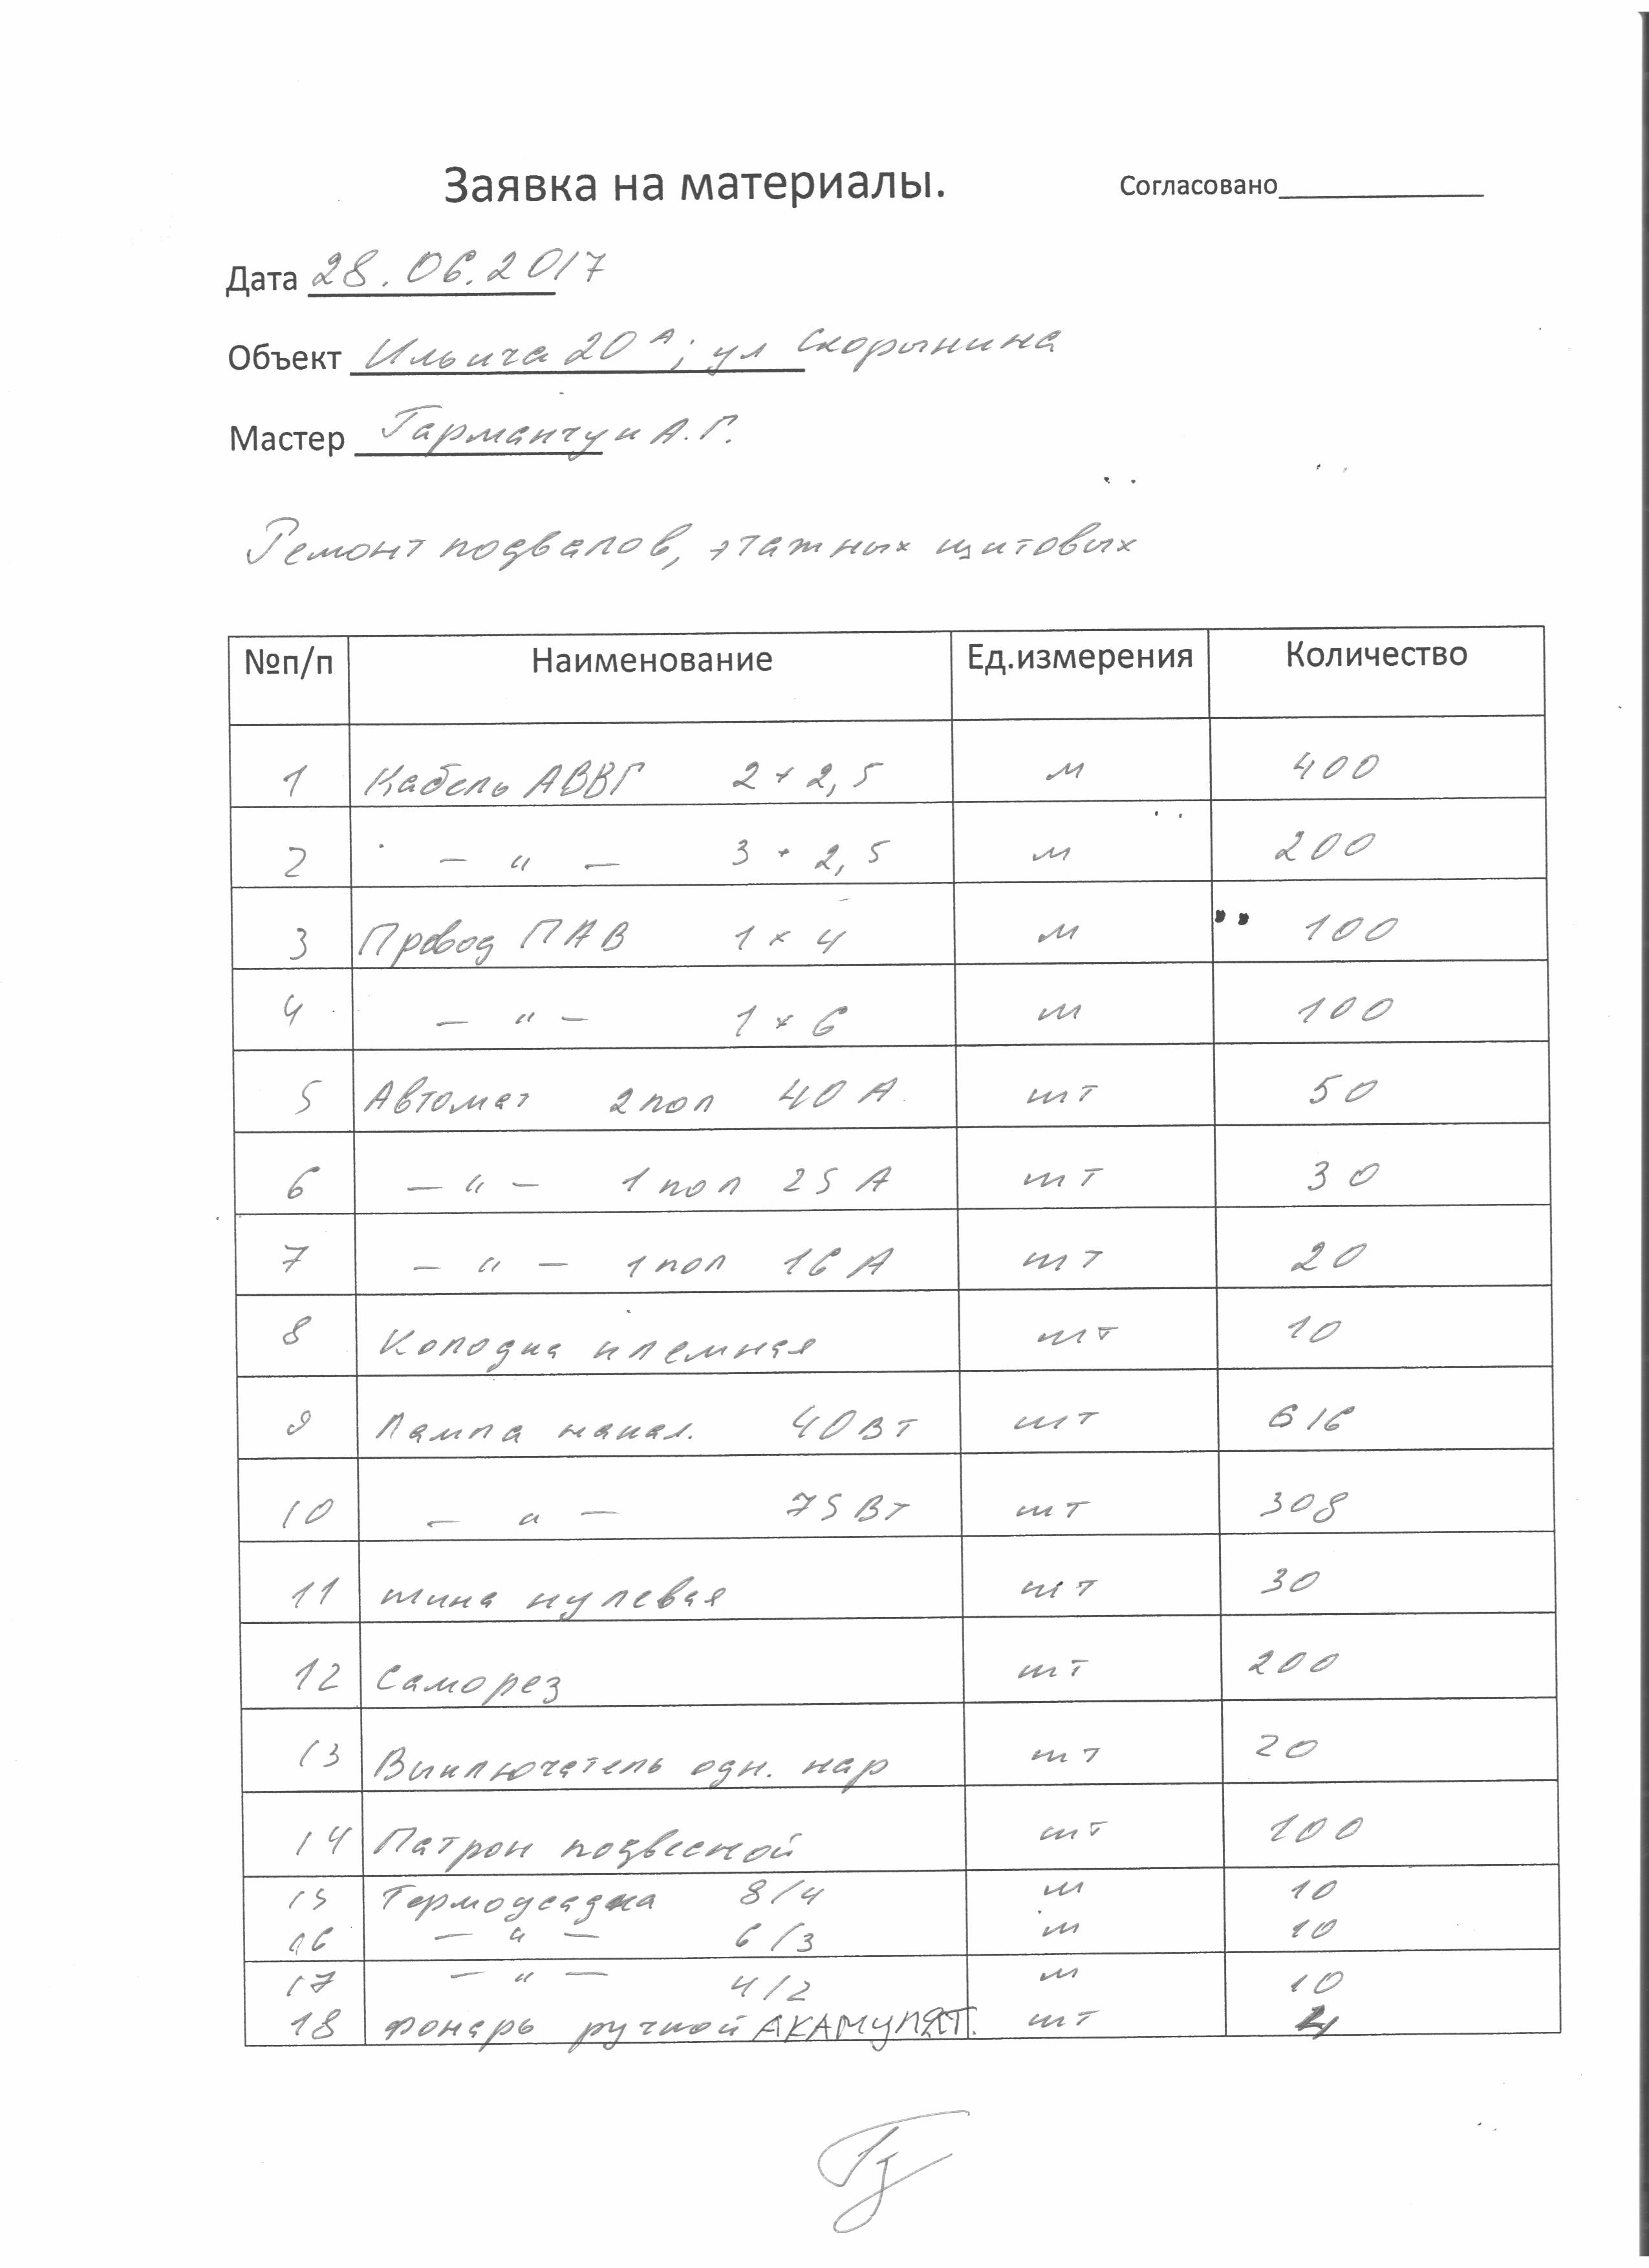 Заявка на материалы. Согласовано
Дата 28.06.2017
Объект Ильича 20А; ул Скорынина
Мастер Гарманчук А.Г.
Ремонт подвалов, этажных щитовых
№п/п Наименование Ед.измерения Количество
1 Кабель АВВГ 2×2,5 м 400
2 — " — 3×2,5 м 200
3 Провод ПАВ 1×4 м 100
4 — " — 1×6 м 100
5 Автомат 2пол 40А шт 50
6 — " — 1пол 25А шт 30
7 — " — 1пол 16А шт 20
8 Колодка клемная шт 10
9 Лампа накал. 40Вт шт 616
10 — " — 75Вт шт 308
11 шина нулевая шт 30
12 Саморез шт 200
13 Выключатель одн. нар шт 20
14 Патрон подвесной шт 100
15 Термоусадка 8/4 м 10
16 — " — 6/3 м 10
17 — " — 4/2 м 10
18 фонарь ручной АКАМУЛЯТ. шт 4